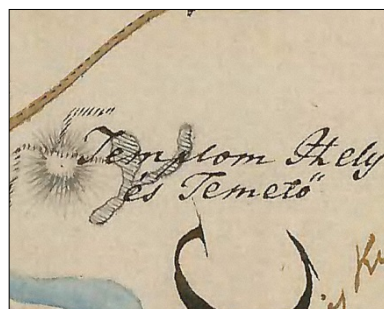 Templom Hely
és Temető